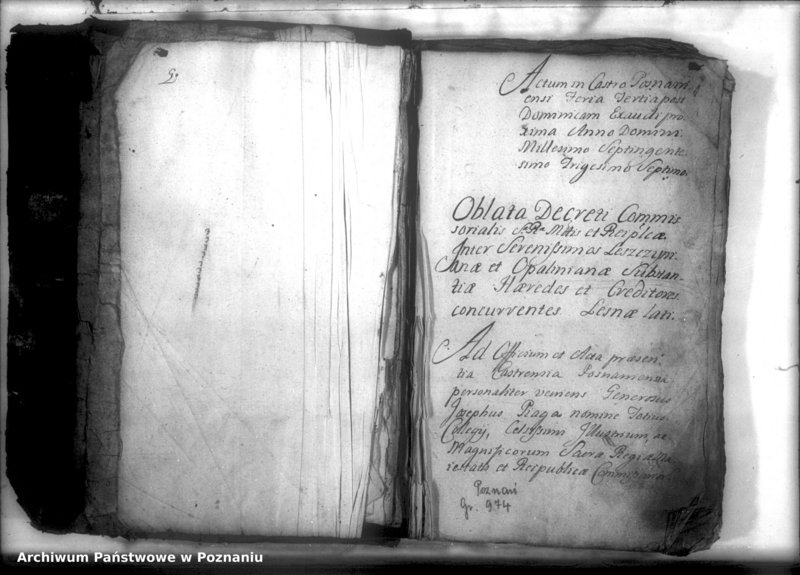 Actum in Castro Posnani
ensi Feria Tertia post
Dominicam Exaudi pro
xima Anno Domini
Millesimo Septingente
simo Trigesimo Septimo.
Oblata Decreti Commis
sorialis S. R. Mttis et Reiplcæ
Inter Serenissimos Leszczyni
anæ et Opalinianæ Substan
tiæ Hæredes et Creditores
concurrentes Lesnæ lati.
Ad Officium et Acta præsen
tia Castrensia Posnaniensia
personaliter veniens Generosus
Josephus Raga nomine Totius
Collegij, Celsissimi Illustrium, ac
Magnificorum Sacræ Regiæ Ma
iestatis et Reipublicæ Commissario
Poznań
Gr. 974
Archiwum Państwowe w Poznaniu